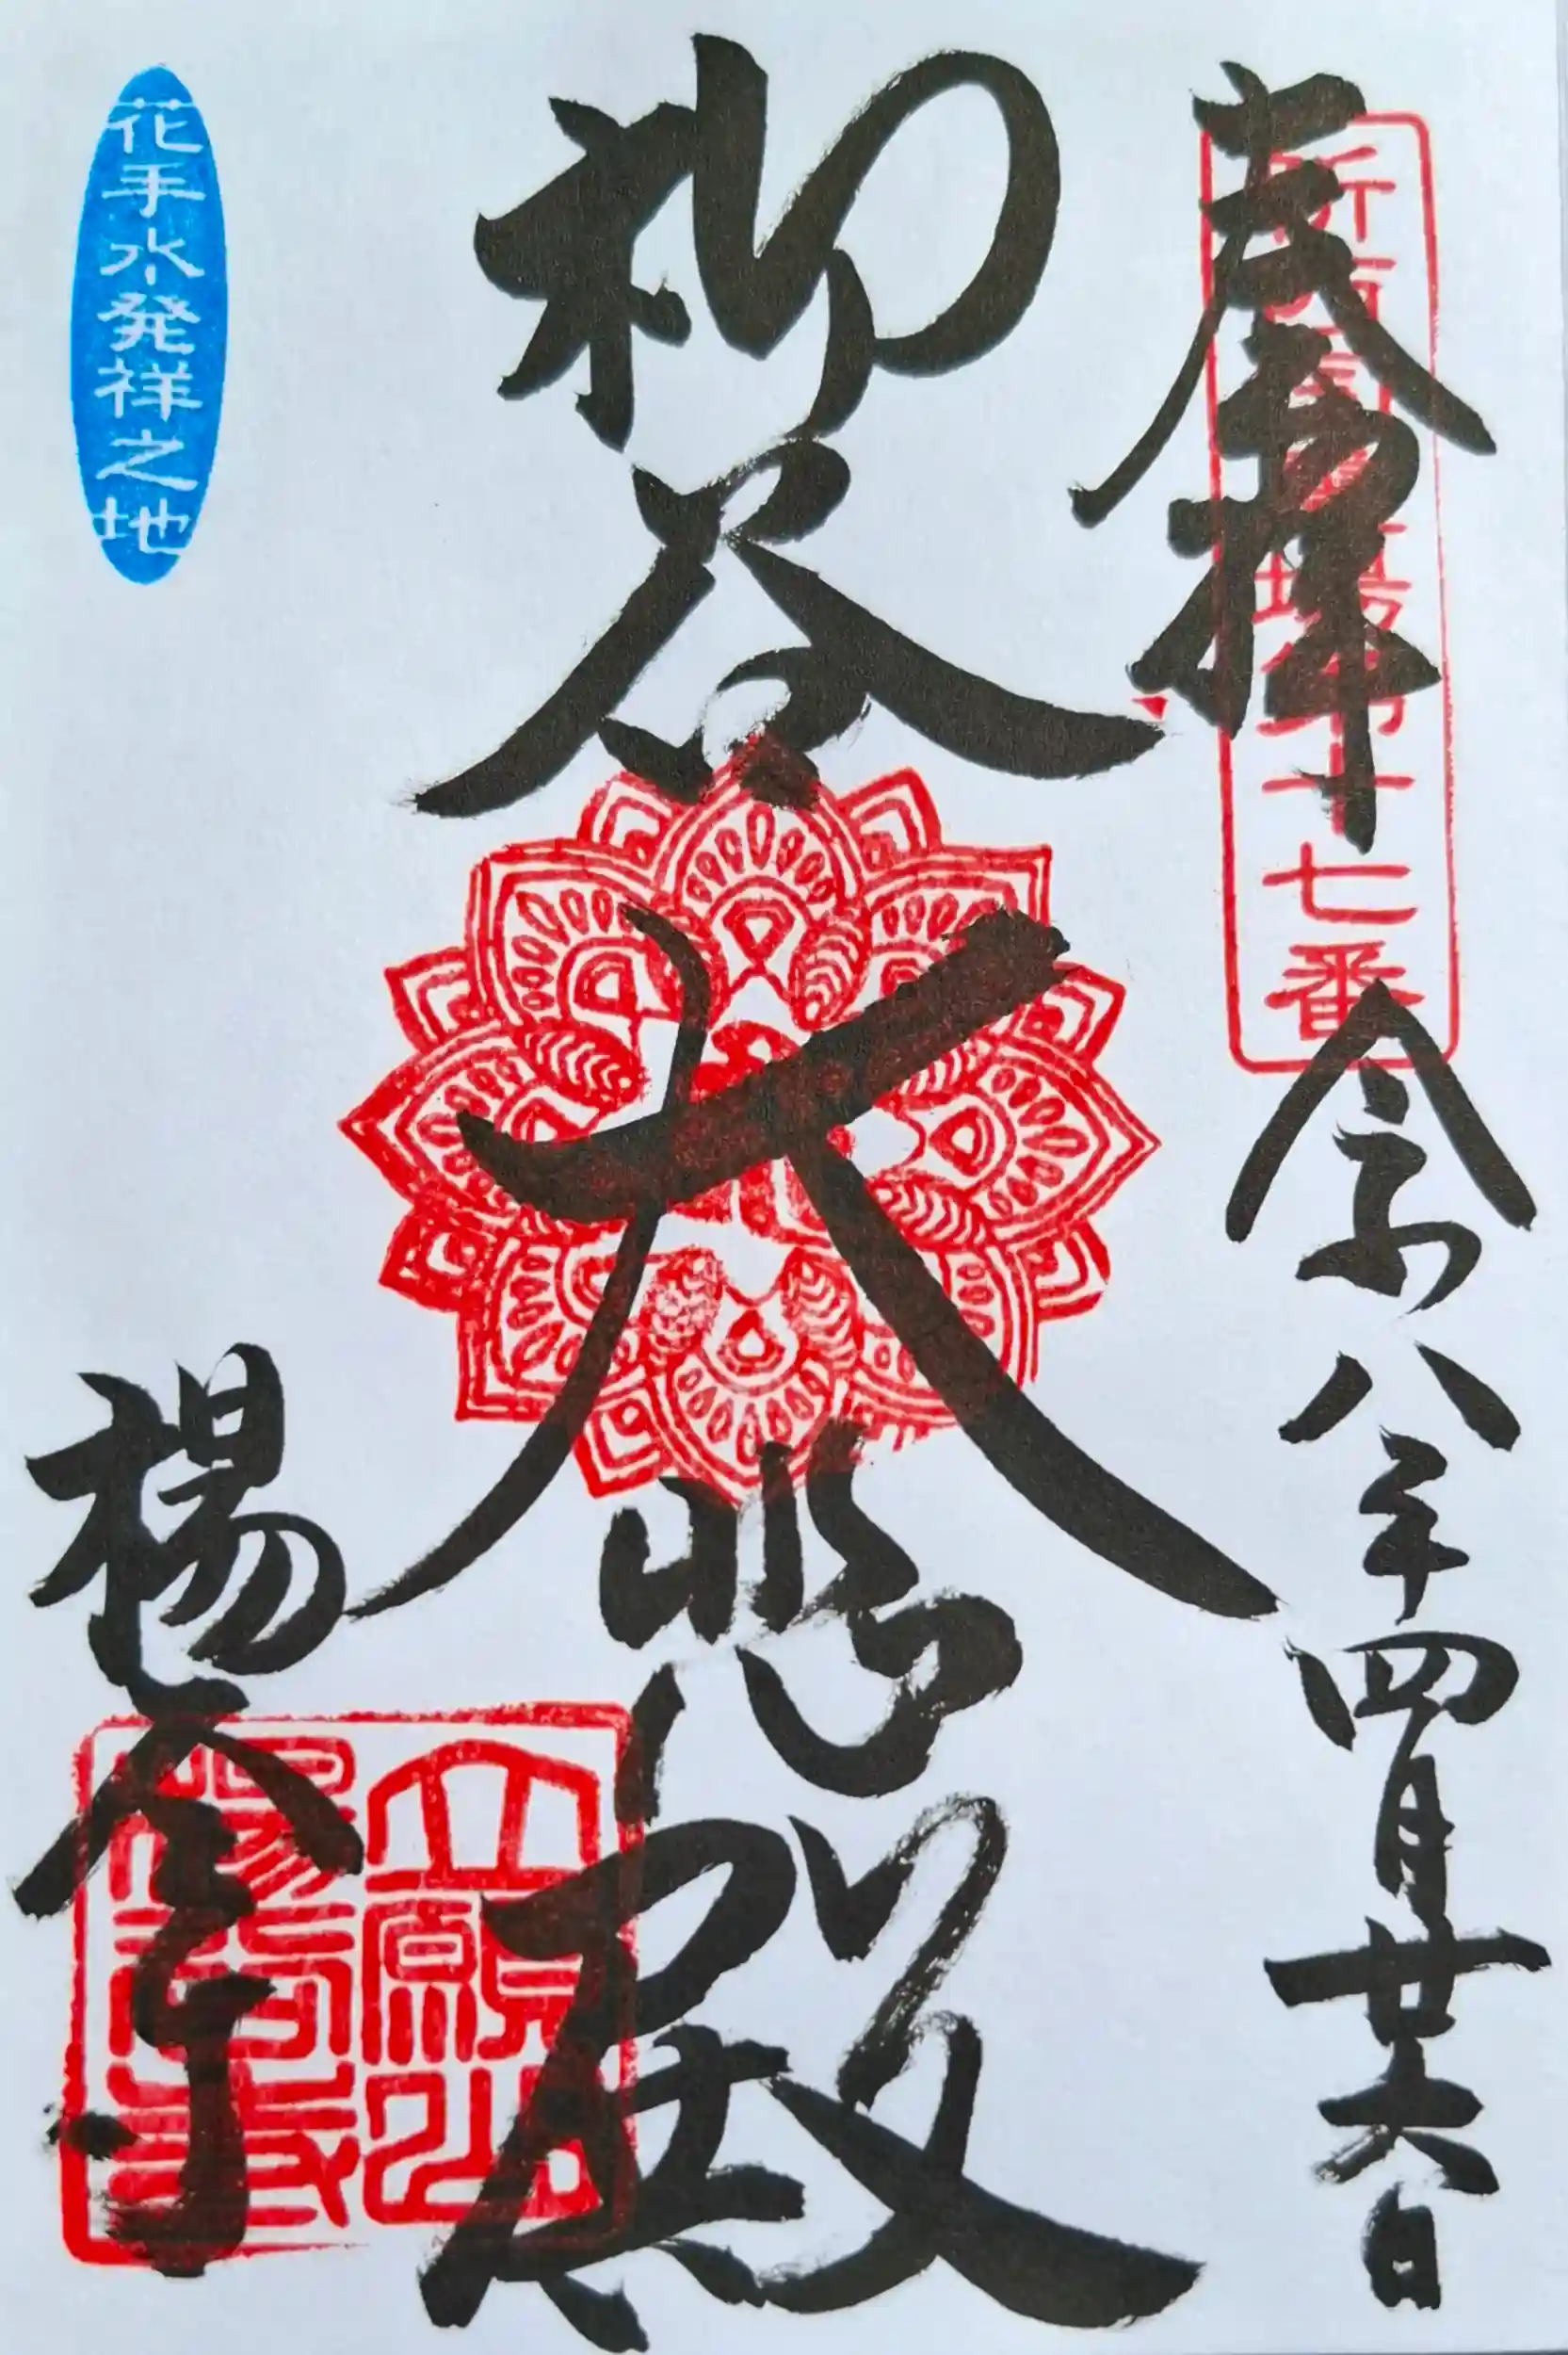 奉拝
新西国霊場第十七番
令和八年四月廿六日
柳谷
大悲殿
楊谷寺
立願山楊谷寺
花手水発祥之地